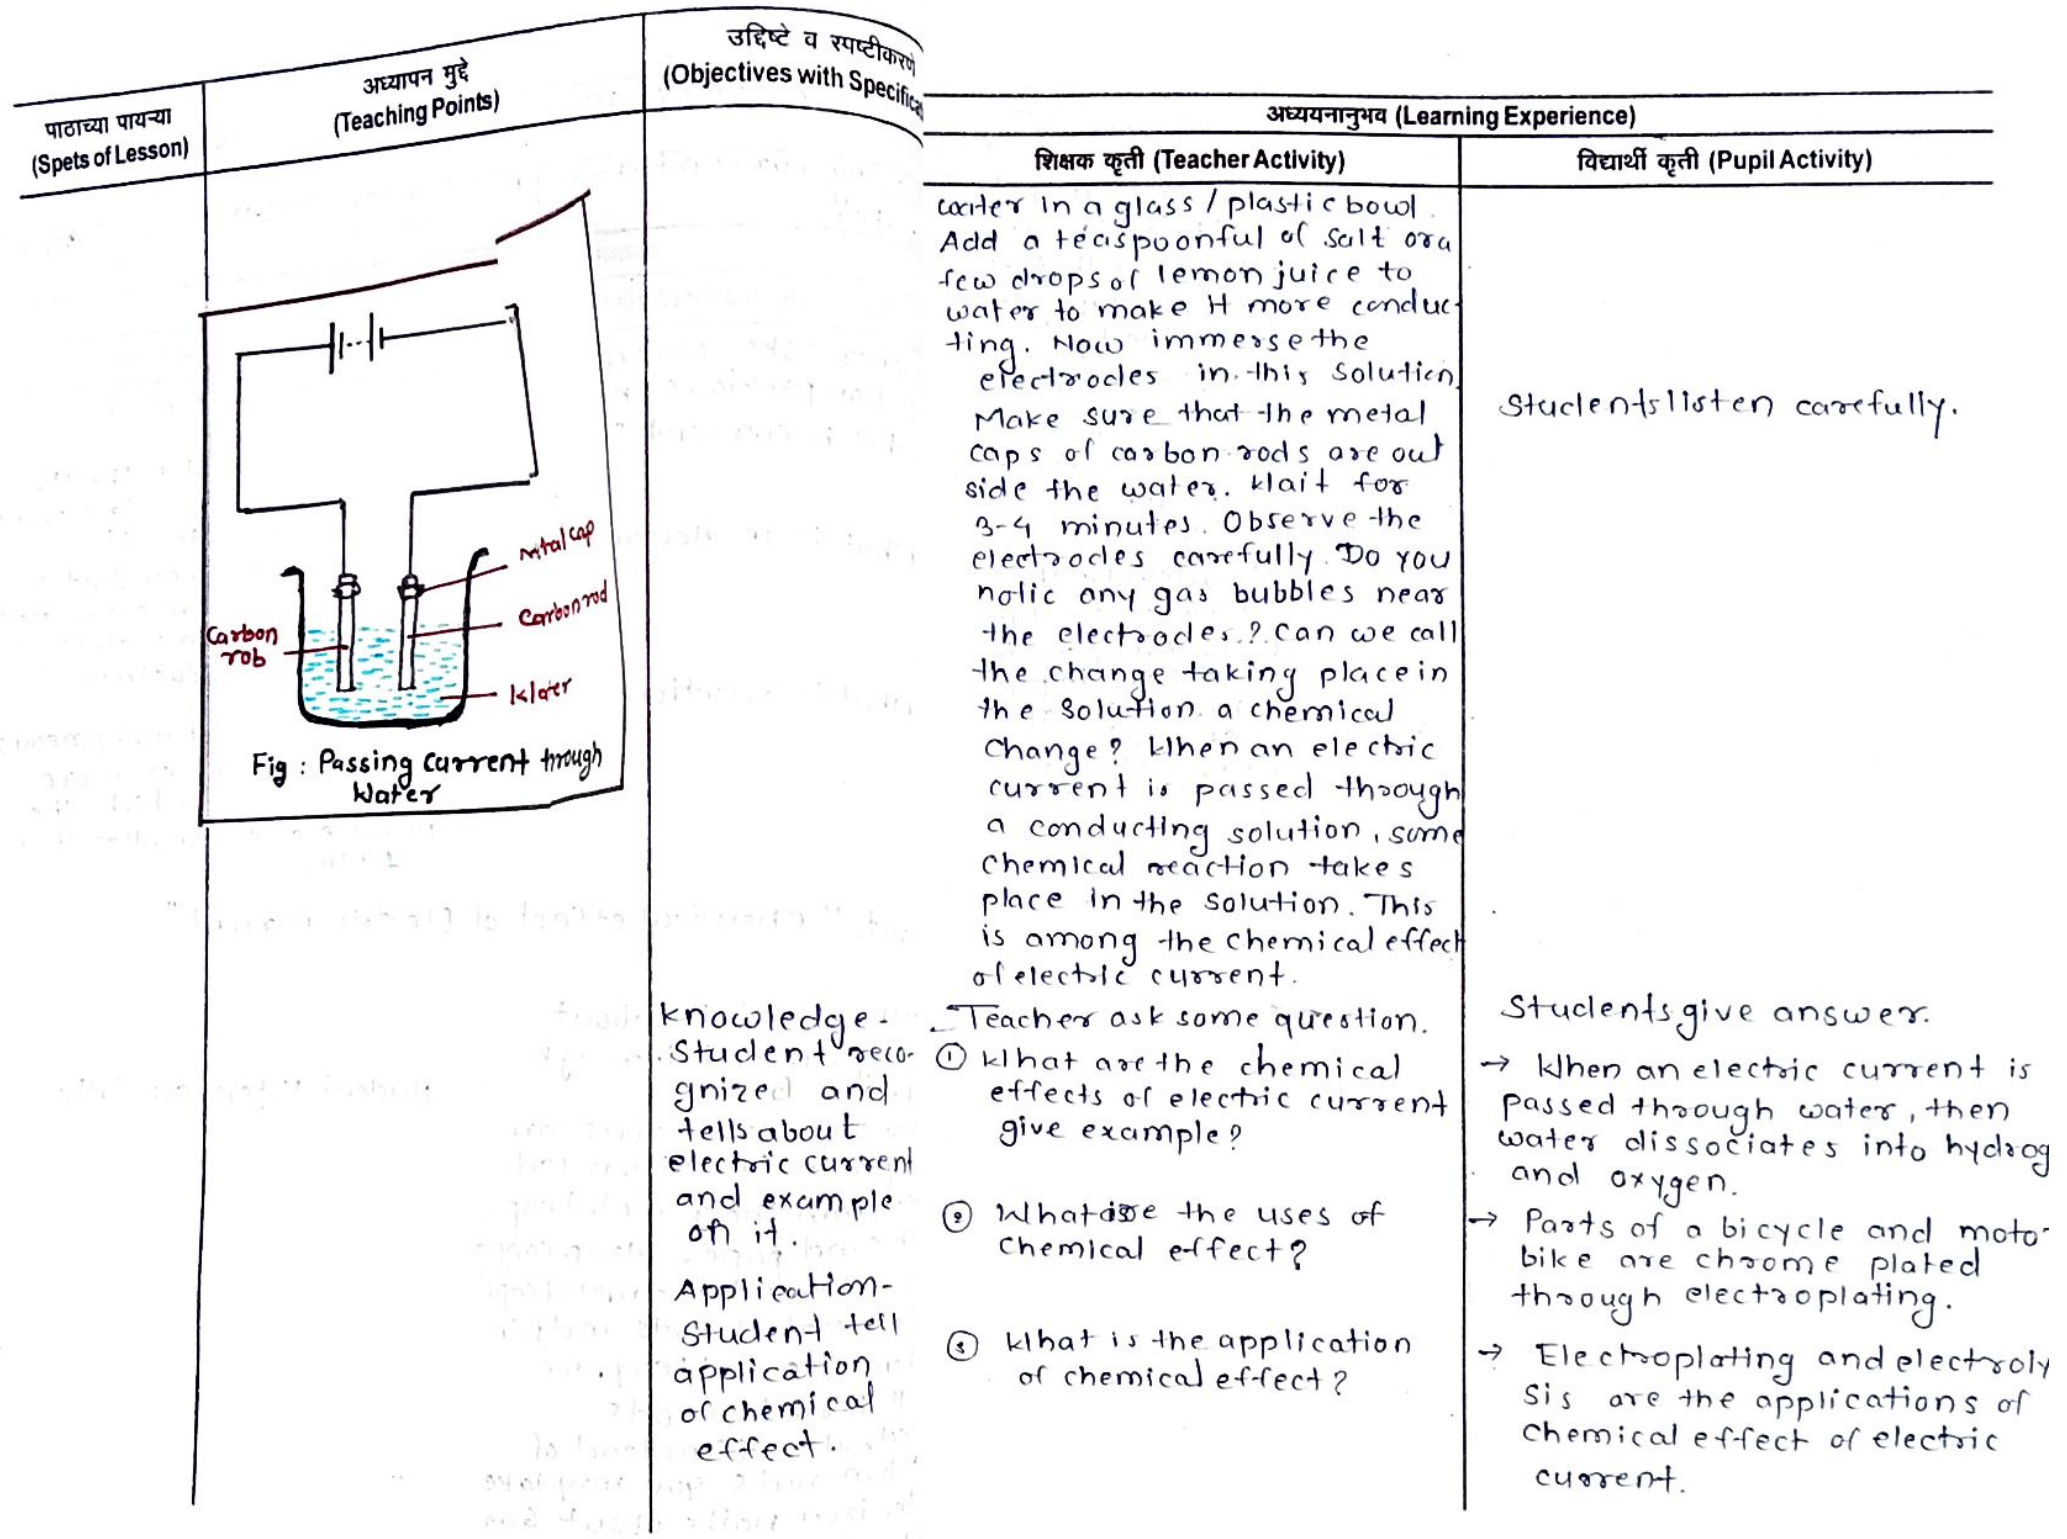 पाठाच्या पायऱ्या
(Spets of Lesson)
अध्यापन मुद्दे
(Teaching Points)
उद्दिष्टे व स्पष्टीकरणे
(Objectives with Specifica
अध्ययनानुभव (Learning Experience)
शिक्षक कृती (Teacher Activity)
विद्यार्थी कृती (Pupil Activity)
Metal cap
Carbon rod
Carbon
rob
Water
Fig : Passing current through
Water
knowledge-
Student reco-
gnized and
tells about
electric current
and example
on it.
Application-
Student tell
application
of chemical
effect.
water in a glass / plastic bowl.
Add a teaspoonful of salt or a
few drops of lemon juice to
water to make it more conduc-
ting. Now immerse the
electrodes in this solution.
Make sure that the metal
caps of carbon rods are out
side the water. Wait for
3-4 minutes. Observe the
electrodes carefully. Do you
notic any gas bubbles near
the electrodes.? Can we call
the change taking place in
the solution a chemical
change? When an electric
current is passed through
a conducting solution, some
chemical reaction takes
place in the solution. This
is among the chemical effect
of electric current.
Teacher ask some question.
① What are the chemical
effects of electric current
give example?
② What are the uses of
chemical effect?
③ What is the application
of chemical effect?
Students listen carefully.
Students give answer.
→ When an electric current is
passed through water, then
water dissociates into hydrog
and oxygen.
→ Parts of a bicycle and moto-
bike are chrome plated
through electroplating.
→ Electroplating and electroly
sis are the applications of
chemical effect of electric
current.